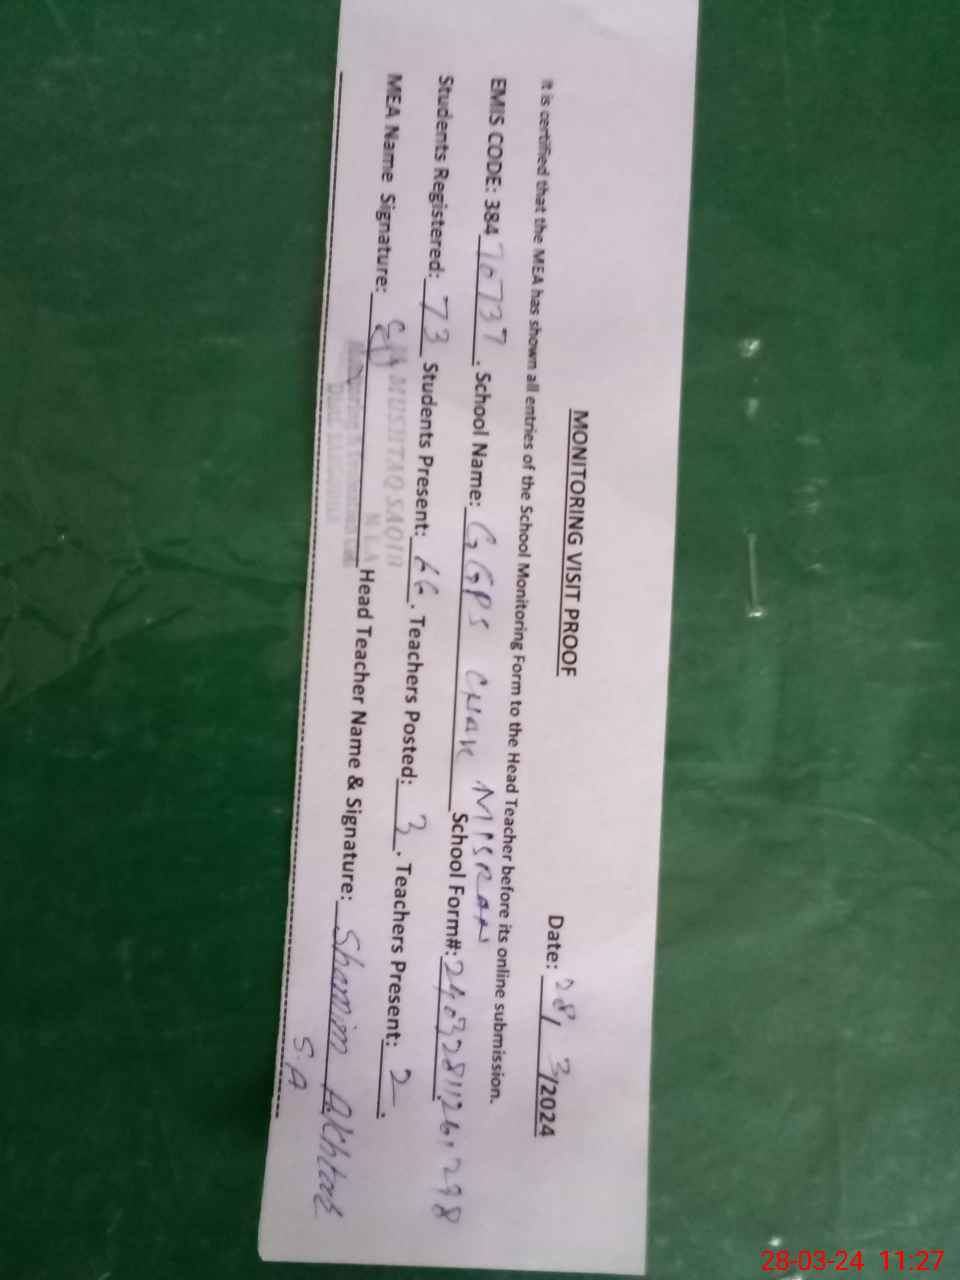 MONITORING VISIT PROOF
Date: 28/ 3/2024
It is certified that the MEA has shown all entries of the School Monitoring Form to the Head Teacher before its online submission.
EMIS CODE: 384 70737 . School Name: GGPS CHAK MISRAN School Form#:
Students Registered: 73 Students Present: 66 . Teachers Posted: 3 . Teachers Present: 2 .
MEA Name Signature: MUSHTAQ SAQIB Head Teacher Name & Signature: Shamim Akhtar
S.A
28-03-24 11:27